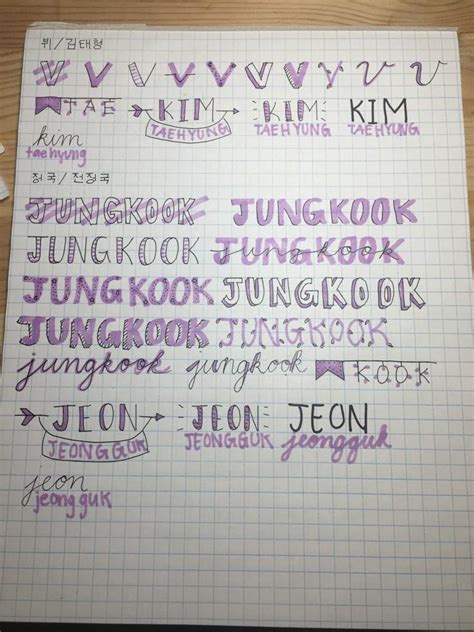 뷔/김태형
V V V V V V V V V V
TAE KIM KIM KIM
TAEHYUNG TAEHYUNG TAEHYUNG
kim
taehyung
정국/전정국
JUNGKOOK JUNGKOOK
JUNGKOOK jungkook
JUNGKOOK JUNGKOOK
JUNGKOOK JUNGKOOK
jungkook jungkook KOOK
JEON JEON JEON
JEONGGUK JEONGGUK jeongguk
jeon
jeongguk